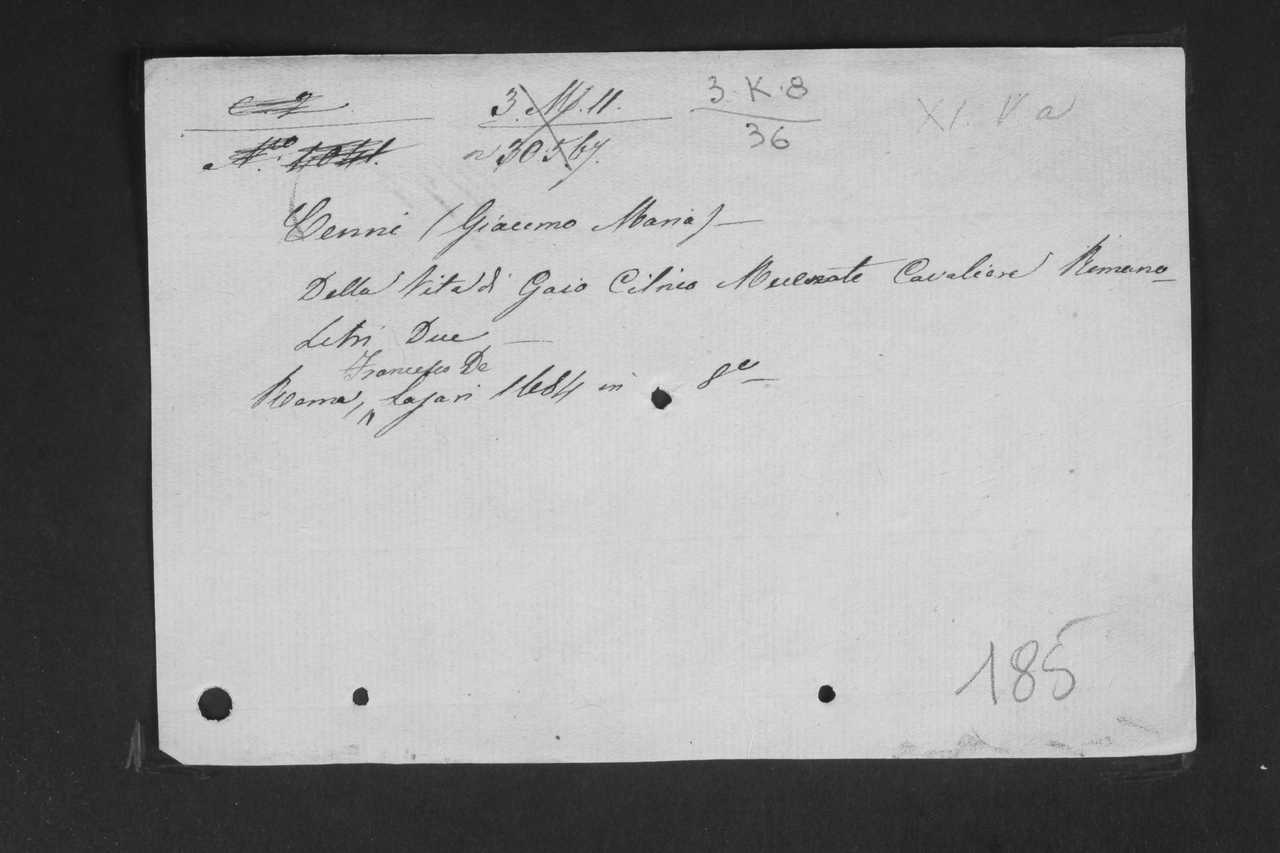 3. M. 11. 3. K. 8 XI. V a
n 30.567. 36
Cenni (Giacomo Maria) —
Della Vita di Gaio Cilnio Mecenate Cavaliere Romano —
Libri Due —
Francesco De
Roma, ^ Lazari 1684 in 8º —
185